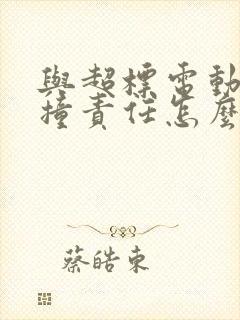 與超標電動
撞責任怎麼
蔡皓東